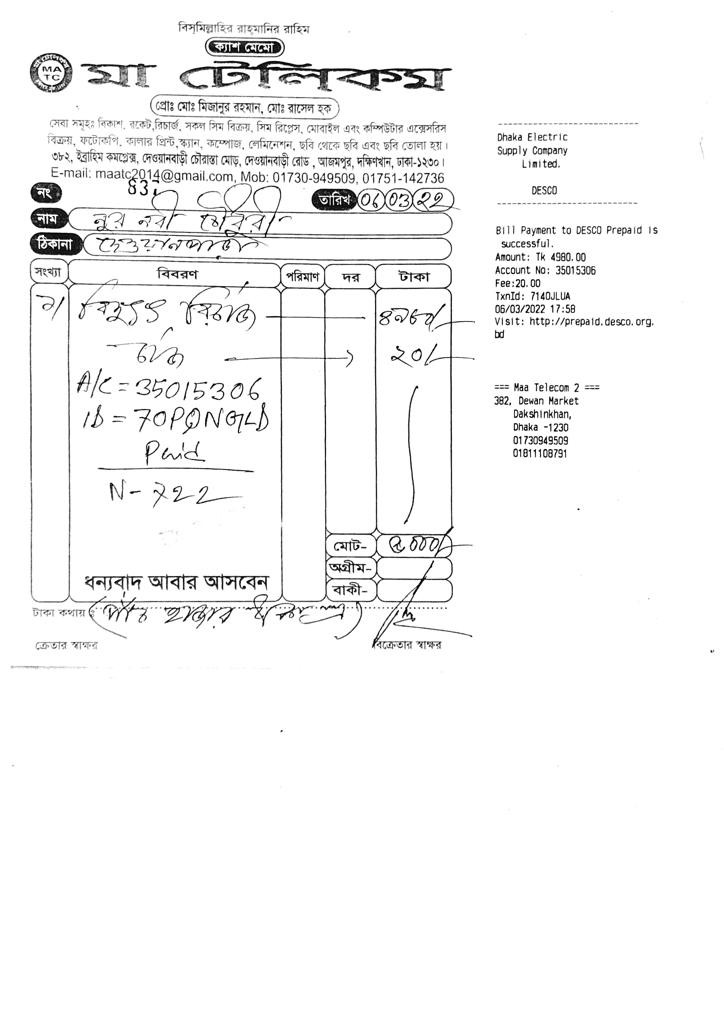 বিস্‌মিল্লাহির রাহ্‌মানির রাহিম
ক্যাশ মেমো
MA
TC
মা টেলিকম
প্রোঃ মোঃ মিজানুর রহমান, মোঃ রাসেল হক
সেবা সমূহঃ বিকাশ, রকেট,রিচার্জ, সকল সিম বিক্রয়, সিম রিপ্লেস, মোবাইল এবং কম্পিউটার এক্সেসরিস
বিক্রয়, ফটোকপি, কালার প্রিন্ট,স্ক্যান, কম্পোজ, লেমিনেশন, ছবি থেকে ছবি এবং ছবি তোলা হয়।
৩৮২, ইব্রাহিম কমপ্লেক্স, দেওয়ানবাড়ী চৌরাস্তা মোড়, দেওয়ানবাড়ী রোড, আজমপুর, দক্ষিণখান, ঢাকা-১২৩০।
E-mail: maatc2014@gmail.com, Mob: 01730-949509, 01751-142736
নং 831
তারিখ 06 03 22
নাম নুর নবী চৌধুরী
ঠিকানা
সংখ্যা বিবরণ পরিমাণ দর টাকা
১/ বিদ্যুৎ রিচার্জ ৪৯৮০/-
চার্জ ২০/-
A/C = 35015306
ID =
Paid
N - 722
মোট- ৫০০০/-
অগ্রীম-
বাকী-
ধন্যবাদ আবার আসবেন
টাকা কথায় ঃ (পাঁচ হাজার টাকা মাত্র)
ক্রেতার স্বাক্ষর বিক্রেতার স্বাক্ষর
Dhaka Electric
Supply Company
Limited.
DESCO
Bill Payment to DESCO Prepaid is
successful.
Amount: Tk 4980.00
Account No: 35015306
Fee:20.00
TxnId: 7140JLUA
06/03/2022 17:58
Visit: http://prepaid.desco.org.
bd
=== Maa Telecom 2 ===
382, Dewan Market
Dakshinkhan,
Dhaka -1230
01730949509
01811108791